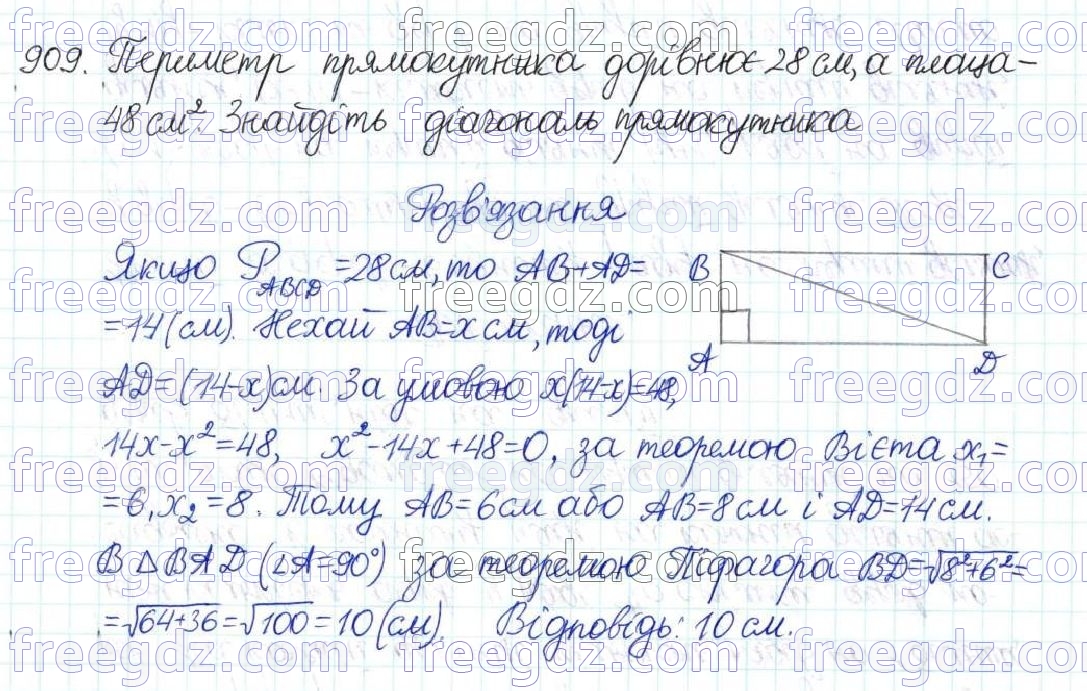 909. Периметр прямокутника дорівнює 28 см, а площа –
48 см². Знайдіть діагональ прямокутника
Розв'язання
Якщо P_ABCD = 28 см, то AB+AD=
=14 (см). Нехай AB=x см, тоді
AD=(14-x) см. За умовою x(14-x)=48,
14x-x²=48, x²-14x+48=0, за теоремою Вієта x₁=
=6, x₂=8. Тому AB=6 см або AB=8 см і AD=14 см.
В △BAD (∠A=90°) за теоремою Піфагора BD=√8²+6²=
=√64+36=√100=10 (см). Відповідь: 10 см.
B C
A D
freegdz.com